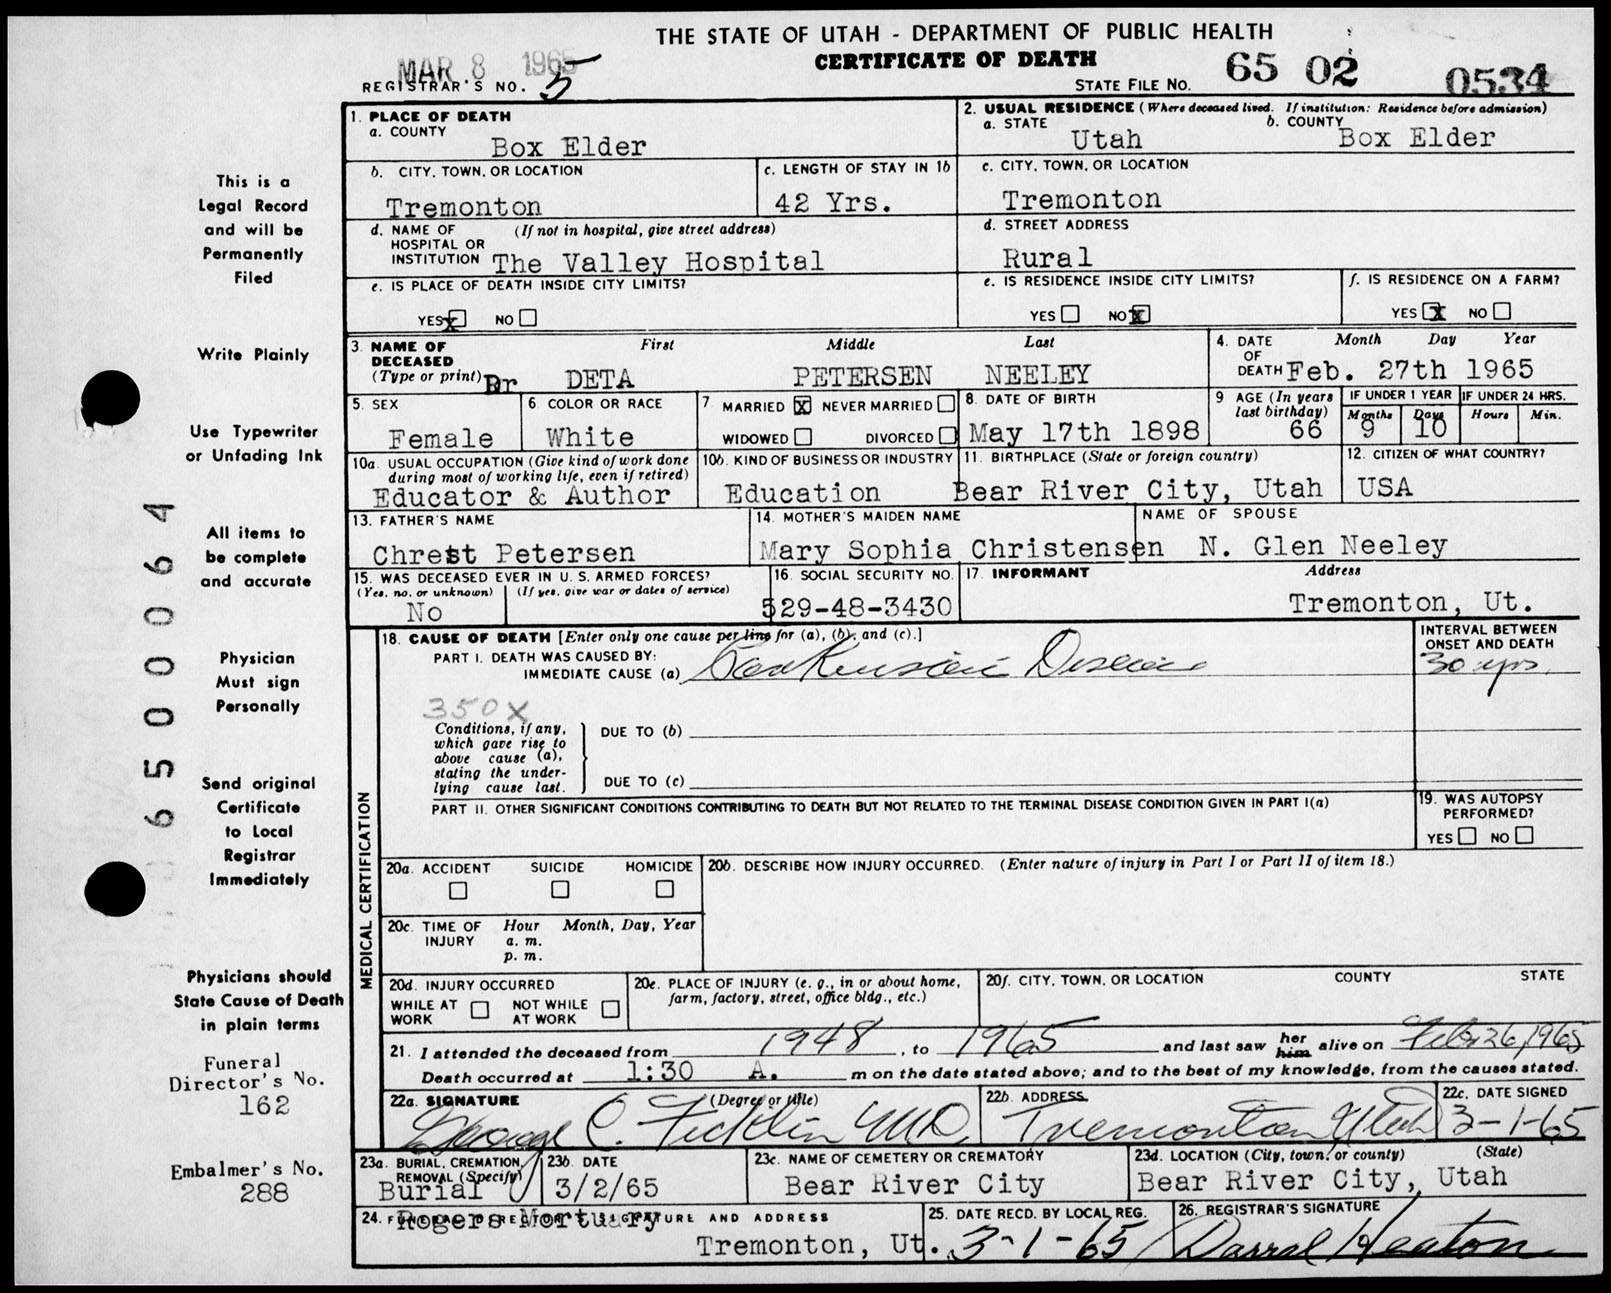 THE STATE OF UTAH - DEPARTMENT OF PUBLIC HEALTH
CERTIFICATE OF DEATH
MAR 8 1965
REGISTRAR'S NO. 5
STATE FILE NO. 65 02 0534
This is a
Legal Record
and will be
Permanently
Filed
Write Plainly
Use Typewriter
or Unfading Ink
All items to
be complete
and accurate
Physician
Must sign
Personally
Send original
Certificate
to Local
Registrar
Immediately
Physicians should
State Cause of Death
in plain terms
Funeral
Director's No.
162
Embalmer's No.
288
65 00064
1. PLACE OF DEATH
a. COUNTY
Box Elder
2. USUAL RESIDENCE (Where deceased lived. If institution: Residence before admission)
a. STATE
Utah
b. COUNTY
Box Elder
b. CITY, TOWN, OR LOCATION
Tremonton
c. LENGTH OF STAY IN 1b
42 Yrs.
c. CITY, TOWN, OR LOCATION
Tremonton
d. NAME OF (If not in hospital, give street address)
HOSPITAL OR
INSTITUTION The Valley Hospital
d. STREET ADDRESS
Rural
e. IS PLACE OF DEATH INSIDE CITY LIMITS?
YES X NO
e. IS RESIDENCE INSIDE CITY LIMITS?
YES NO X
f. IS RESIDENCE ON A FARM?
YES X NO
3. NAME OF First Middle Last
DECEASED
(Type or print) Dr DETA PETERSEN NEELEY
4. DATE Month Day Year
OF
DEATH Feb. 27th 1965
5. SEX
Female
6. COLOR OR RACE
White
7 MARRIED X NEVER MARRIED
WIDOWED DIVORCED
8. DATE OF BIRTH
May 17th 1898
9 AGE (In years
last birthday)
66
IF UNDER 1 YEAR
Months Days
9 10
IF UNDER 24 HRS.
Hours Min.
10a. USUAL OCCUPATION (Give kind of work done
during most of working life, even if retired)
Educator & Author
10b. KIND OF BUSINESS OR INDUSTRY
Education
11. BIRTHPLACE (State or foreign country)
Bear River City, Utah
12. CITIZEN OF WHAT COUNTRY?
USA
13. FATHER'S NAME
Chrest Petersen
14. MOTHER'S MAIDEN NAME
Mary Sophia Christensen
NAME OF SPOUSE
N. Glen Neeley
15. WAS DECEASED EVER IN U. S. ARMED FORCES?
(Yes, no, or unknown) (If yes, give war or dates of service)
No
16. SOCIAL SECURITY NO.
529-48-3430
17. INFORMANT Address
Tremonton, Ut.
MEDICAL CERTIFICATION
18. CAUSE OF DEATH [Enter only one cause per line for (a), (b), and (c).]
PART I. DEATH WAS CAUSED BY:
IMMEDIATE CAUSE (a) Parkinsons Disease
INTERVAL BETWEEN
ONSET AND DEATH
30 yrs.
350X
Conditions, if any,
which gave rise to
above cause (a),
stating the under-
lying cause last.
DUE TO (b)
DUE TO (c)
PART II. OTHER SIGNIFICANT CONDITIONS CONTRIBUTING TO DEATH BUT NOT RELATED TO THE TERMINAL DISEASE CONDITION GIVEN IN PART I(a)
19. WAS AUTOPSY
PERFORMED?
YES NO
20a. ACCIDENT SUICIDE HOMICIDE
20b. DESCRIBE HOW INJURY OCCURRED. (Enter nature of injury in Part I or Part II of item 18.)
20c. TIME OF Hour Month, Day, Year
INJURY a. m.
p. m.
20d. INJURY OCCURRED
WHILE AT NOT WHILE
WORK AT WORK
20e. PLACE OF INJURY (e. g., in or about home,
farm, factory, street, office bldg., etc.)
20f. CITY, TOWN, OR LOCATION COUNTY STATE
21. I attended the deceased from 1948, to 1965 and last saw her him alive on Feb. 26, 1965
Death occurred at 1:30 A. m on the date stated above; and to the best of my knowledge, from the causes stated.
22a. SIGNATURE (Degree or title)
George C. Ficklin M.D.
22b. ADDRESS
Tremonton Utah
22c. DATE SIGNED
3-1-65
23a. BURIAL, CREMATION,
REMOVAL (Specify)
Burial
23b. DATE
3/2/65
23c. NAME OF CEMETERY OR CREMATORY
Bear River City
23d. LOCATION (City, town, or county) (State)
Bear River City, Utah
24. FUNERAL DIRECTOR'S SIGNATURE AND ADDRESS
Rogers Mortuary
Tremonton, Ut.
25. DATE RECD. BY LOCAL REG.
3-1-65
26. REGISTRAR'S SIGNATURE
Darral Heaton